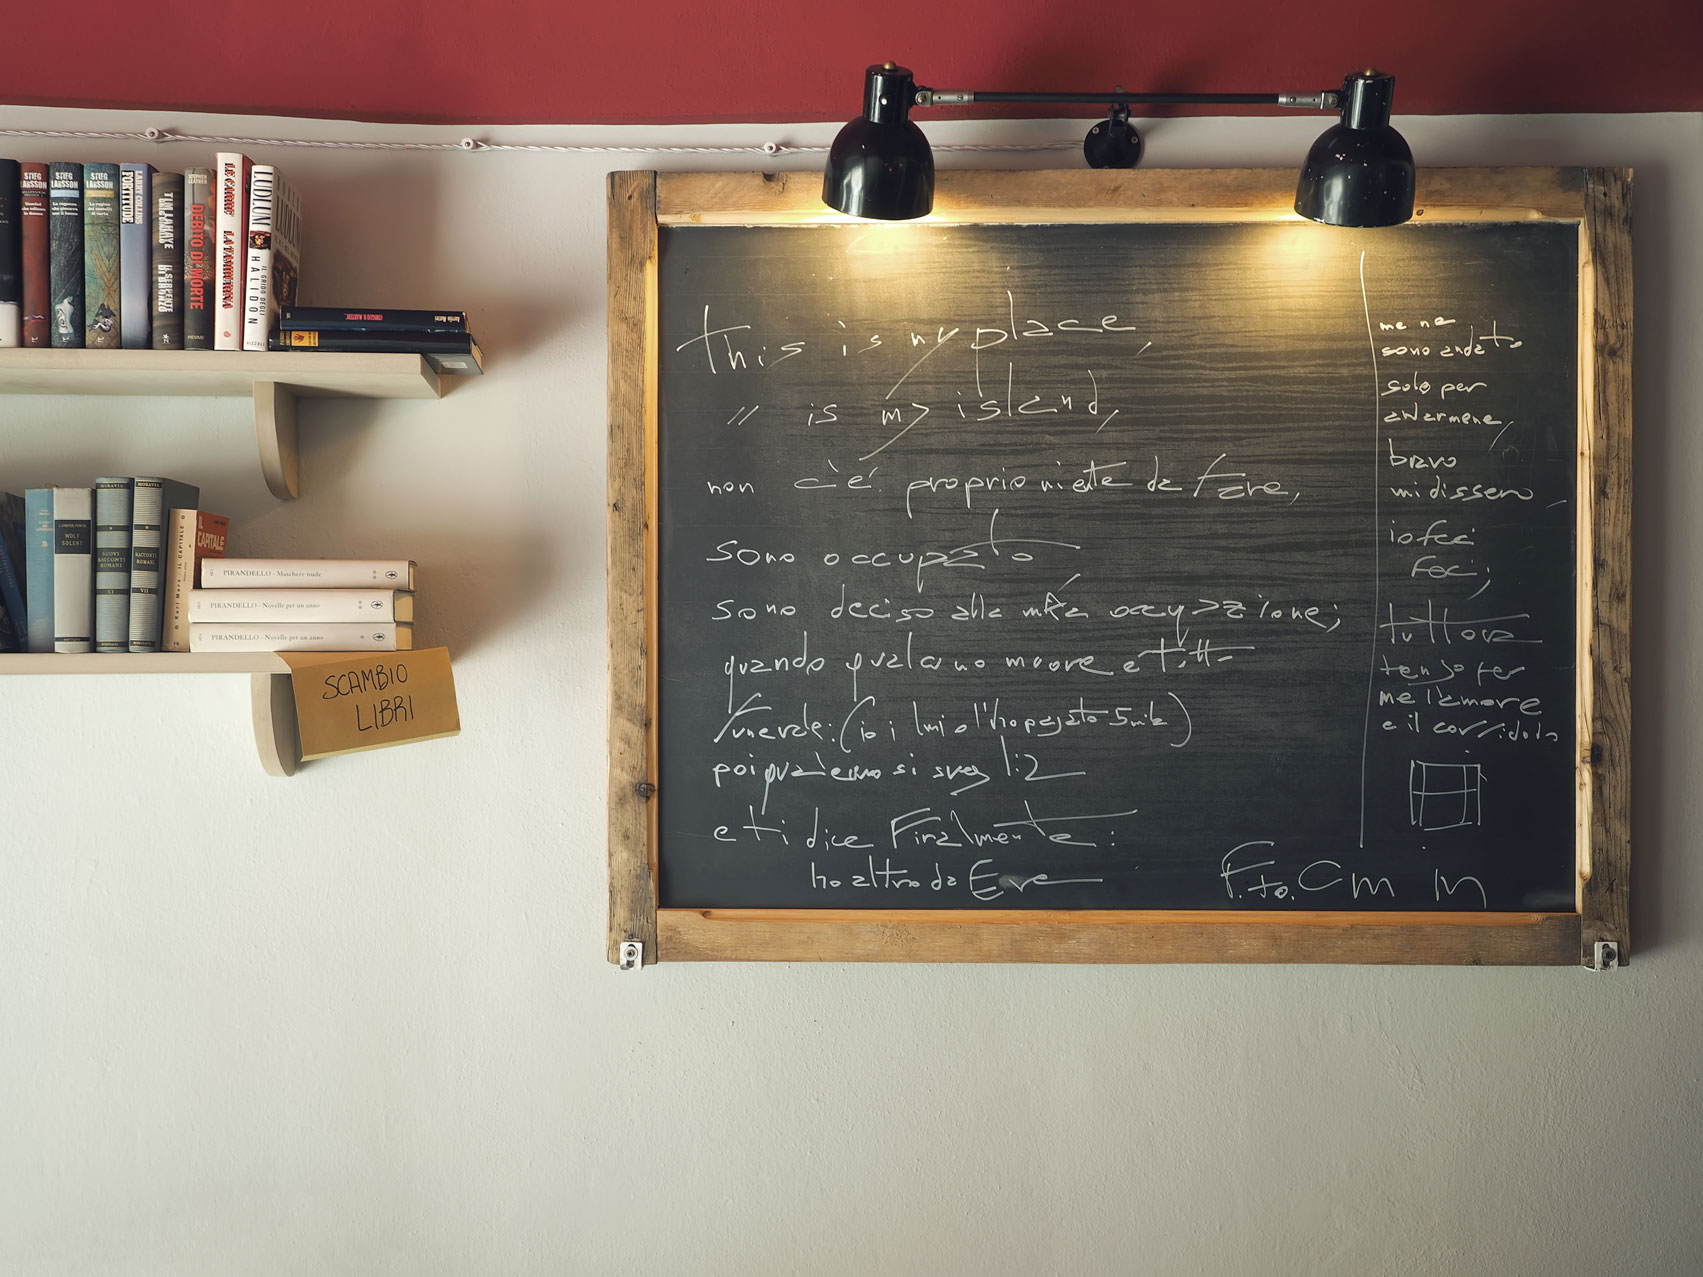 STIEG LARSSON
STIEG LARSSON
STIEG LARSSON
LARRY COLLINS
FORTITUDE
DEBITO DI MORTE
LE CARRÉ LA TAMBURINA
LUDLUM
IL GRIDO DEGLI HALIDON
WOLF SOLENT
MORAVIA
NUOVI RACCONTI ROMANI
MORAVIA
RACCONTI ROMANI
VII
Karl Marx · IL CAPITALE
IL CAPITALE
PIRANDELLO - Maschere nude
PIRANDELLO - Novelle per un anno
PIRANDELLO - Novelle per un anno
SCAMBIO
LIBRI
This is my place,
" is my island,
non c'è proprio niente da fare,
sono occupato
sono deciso alla mia occupazione;
quando qualcuno muore e tutto
funerale: (io i lmio l'ho pagato 5mila)
poi qualcuno si sveglia
e ti dice Finalmente:
ho altro da
F.to. Cm
me ne
sono andato
solo per
andarmene,
bravo
mi dissero
io feci
feci;
tuttora
tengo per
me l'amore
e il corridoio